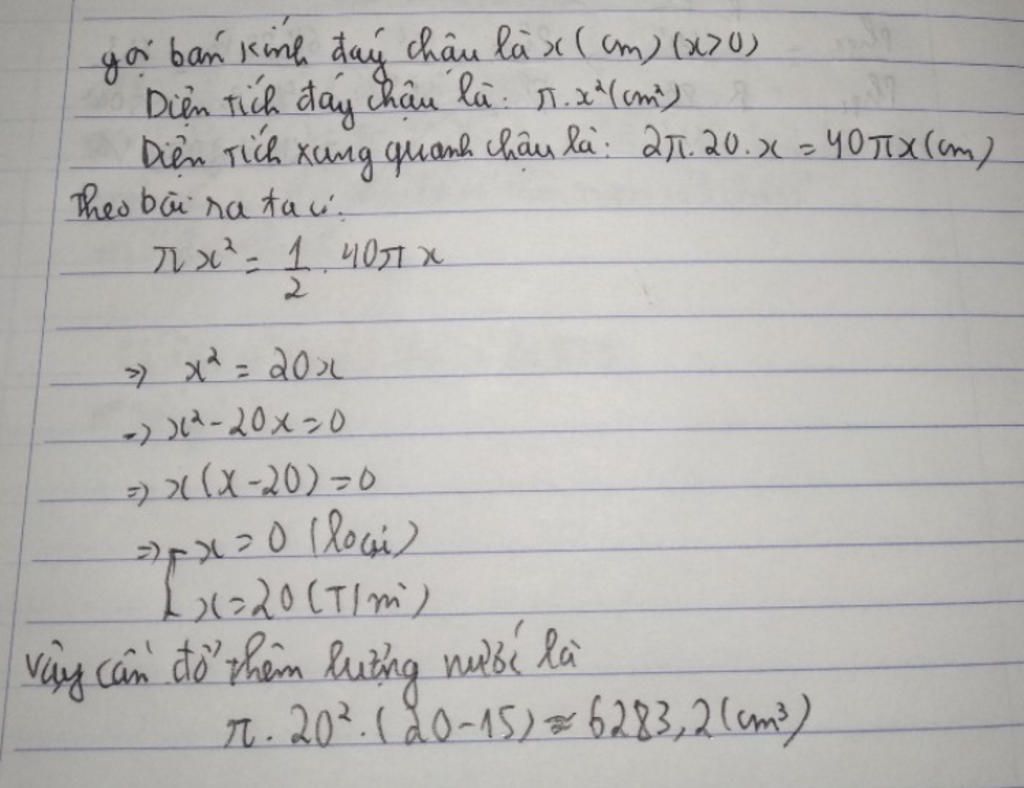 gọi bán kính đáy chậu là x (cm) (x>0)
Diện tích đáy chậu là: π.x² (cm²)
Diện tích xung quanh chậu là: 2π.20.x = 40πx (cm)
Theo bài ra ta có:
πx² = 1/2 . 40πx
=> x² = 20x
=> x² - 20x = 0
=> x(x-20) = 0
=> [ x = 0 (loại)
x = 20 (T/m)
vậy cần đổ thêm lượng nước là
π. 20². (20-15) ≈ 6283,2 (cm³)